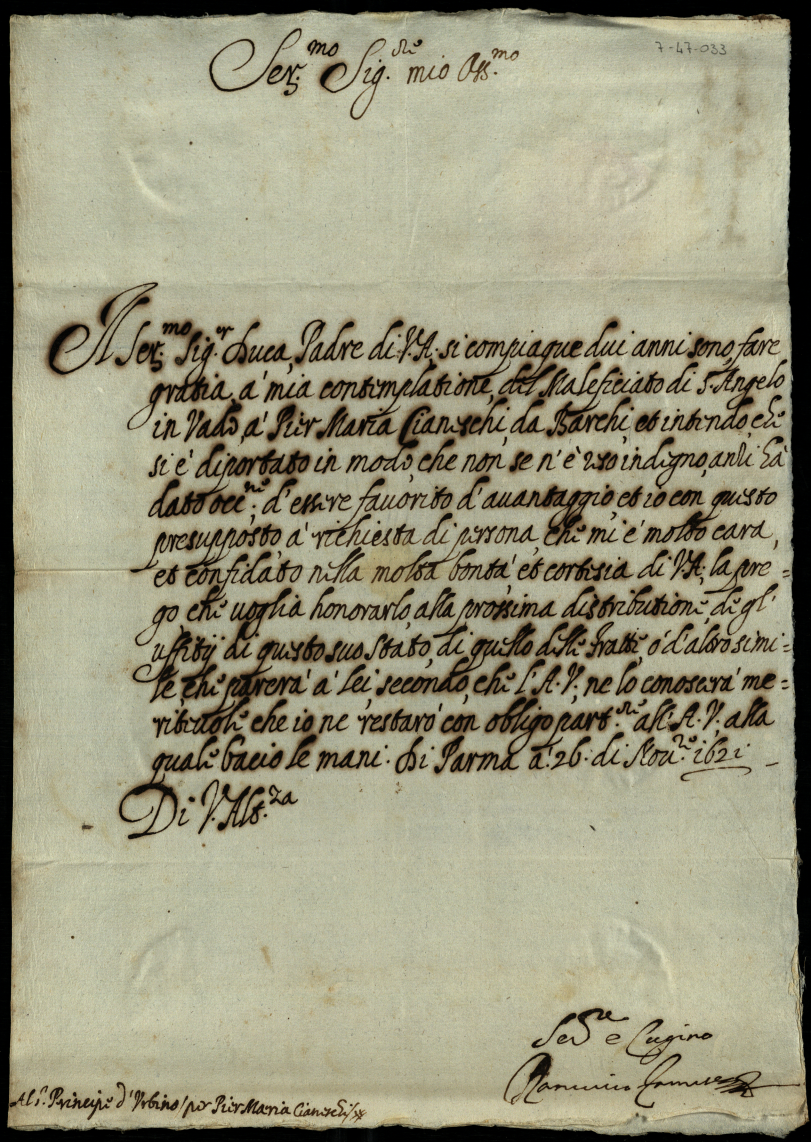 7-47-033
Ser.mo Sig.re mio Oss.mo
Il Ser.mo Sig.or Duca Padre di V.A. si compiaque dui anni sono, fare
gratia, a' mia contemplatione, del Maleficiato di S. Angelo
in Vado, a' Pier Maria Cianeschi, da Barchi, et intendo, che
si e' diportato in modo, che non se n'è reso, indegno, anzi hà
dato occ.ne d'essere favorito d'avantaggio, et io con questo
presupposto a' richiesta di persona, che mi e' molto cara,
et confidato nella molta bontà et cortesia di V.A. la pre=
go, che voglia honorarlo, alla prossima distributione, de gl'
uffitij di questo suo Stato, di quello delle Fratte, o' d'altro simi=
le che parerà a' lei secondo, che l'A.V. ne lo conoscerà me=
ritevole che io ne restarò con obligo part.re all'A.V. alla
quale bacio le mani. Di Parma a' 26. di Nov.re 1621
Di V. Alt.za
Ser.re e Cugino
Ranuccio Farnese
Al S.r Principe d'Urbino / per Pier Maria Cianeschi